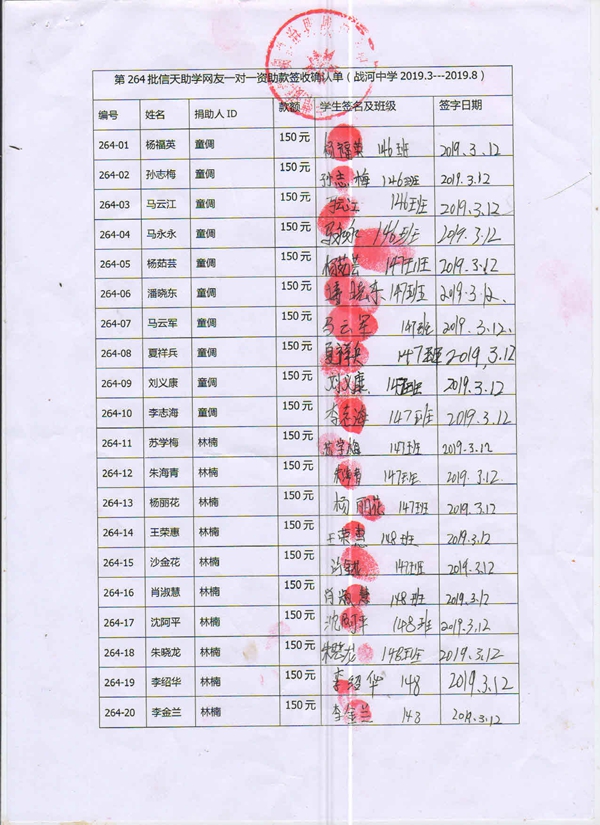 第 264 批信天助学网友一对一资助款签收确认单（战河中学 2019.3---2019.8）
编号 姓名 捐助人 ID 款额 学生签名及班级 签字日期
264-01 杨福英 童倜 150 元 杨福英 146班 2019.3.12
264-02 孙志梅 童倜 150 元 孙志梅 146班 2019.3.12
264-03 马云江 童倜 150 元 马云江 146班 2019.3.12
264-04 马永永 童倜 150 元 马永永 146班 2019.3.12
264-05 杨茹芸 童倜 150 元 杨茹芸 147班 2019.3.12
264-06 潘晓东 童倜 150 元 潘晓东 147班 2019.3.12.
264-07 马云军 童倜 150 元 马云军 147班 2019.3.12.
264-08 夏祥兵 童倜 150 元 夏祥兵 147班 2019.3.12
264-09 刘义康 童倜 150 元 刘义康 147班 2019.3.12
264-10 李志海 童倜 150 元 李志海 147班 2019.3.12
264-11 苏学梅 林楠 150 元 苏学梅 147班 2019.3.12
264-12 朱海青 林楠 150 元 朱海青 147班 2019.3.12
264-13 杨丽花 林楠 150 元 杨丽花 147班 2019.3.12
264-14 王荣惠 林楠 150 元 王荣惠 148班 2019.3.12
264-15 沙金花 林楠 150 元 沙金花 147班 2019.3.12
264-16 肖淑慧 林楠 150 元 肖淑慧 148班 2019.3.12
264-17 沈阿平 林楠 150 元 沈阿平 148班 2019.3.12
264-18 朱晓龙 林楠 150 元 朱晓龙 148班 2019.3.12
264-19 李绍华 林楠 150 元 李绍华 148 2019.3.12
264-20 李金兰 林楠 150 元 李金兰 148 2019.3.12